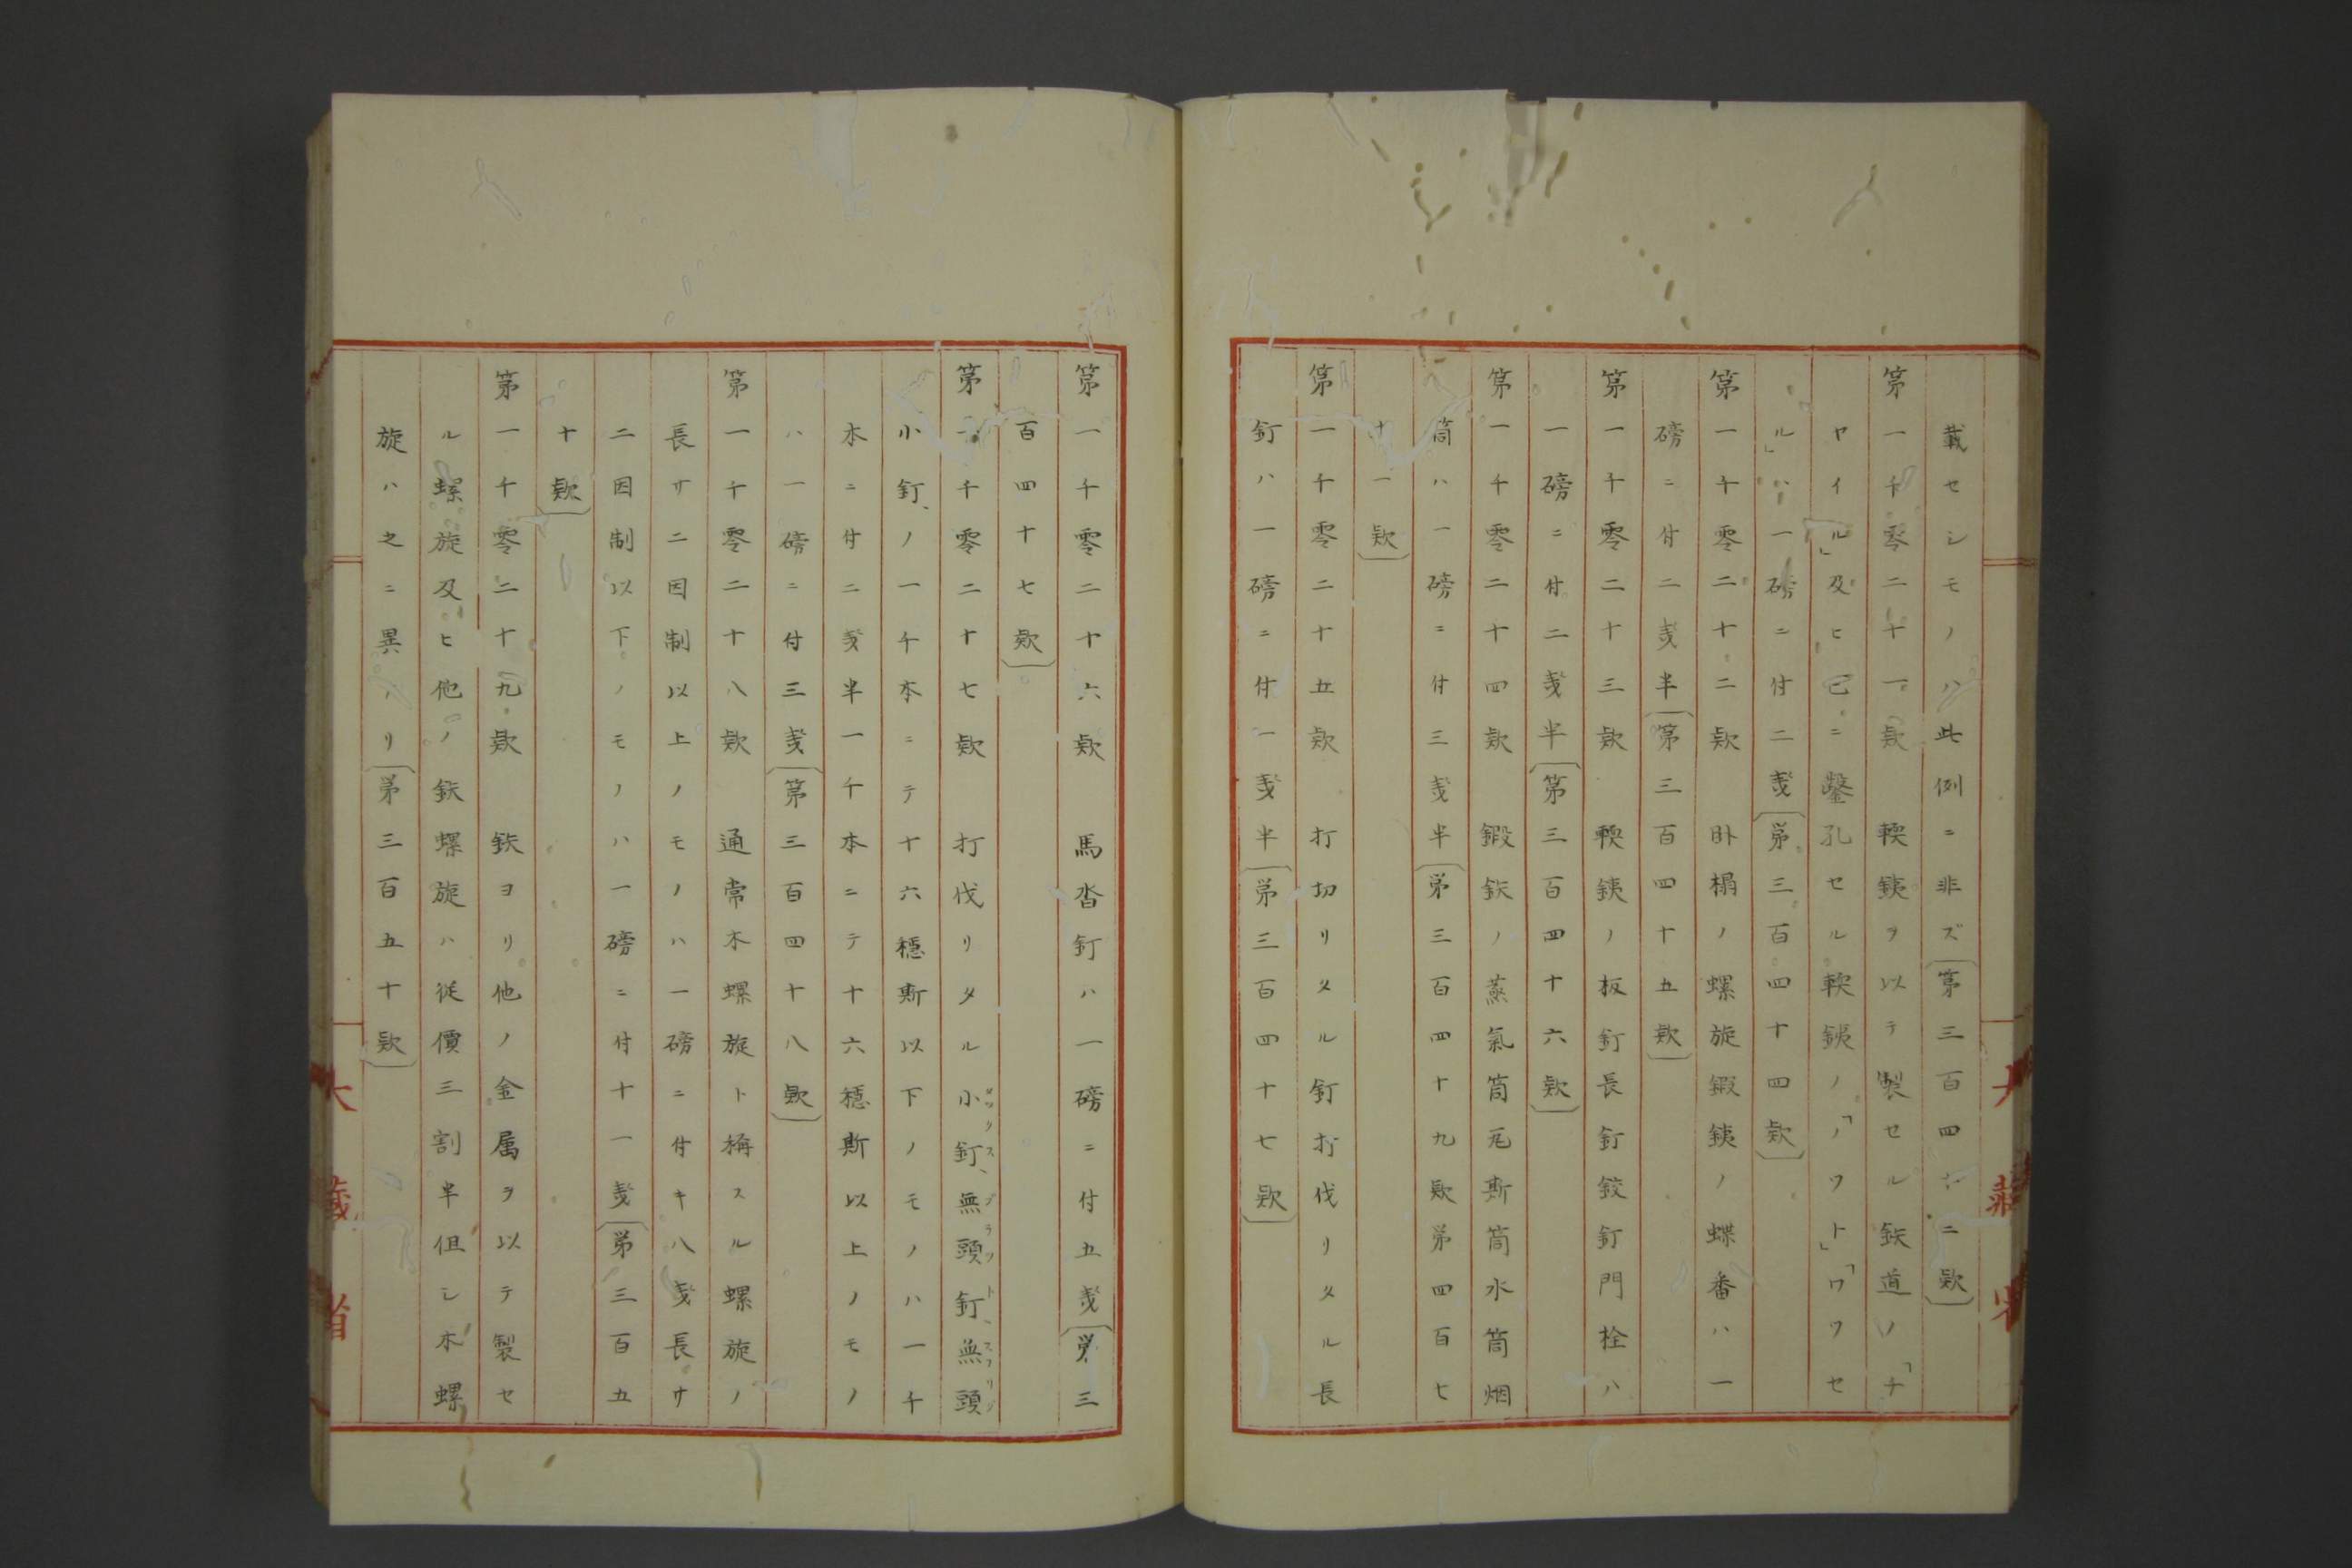 載セシモノハ此例ニ非ズ〔第三百四十二款〕
第一千零二十一款　輭銕ヲ以テ製セル鉄道ノ「チ
ヤイル」及ヒ已ニ鑿孔セル輭銕ノ「ノツト」「ワツセ
ル」ハ一磅ニ付二戔〔第三百四十四款〕
第一千零二十二款　臥榻ノ螺旋鍜銕ノ蝶番ハ一
磅ニ付二戔半〔第三百四十五款〕
第一千零二十三款　輭銕ノ板釘長釘鉸釘門栓ハ
一磅ニ付二戔半〔第三百四十六款〕
第一千零二十四款　鍜鉄ノ蒸氣筒瓦斯筒水筒烟
筒ハ一磅ニ付三戔半〔第三百四十九款第四百七
十一款〕
第一千零二十五款　打切リタル釘打伐リタル長
釘ハ一磅ニ付一戔半〔第三百四十七款〕
第一千零二十六款　馬沓釘ハ一磅ニ付五戔〔第三
百四十七款〕
第一千零二十七款　打伐リタル小釘、無頭釘、無頭
小釘、ノ一千本ニテ十六穏斯以下ノモノハ一千
本ニ付二戔半一千本ニテ十六穏斯以上ノモノ
ハ一磅ニ付三戔〔第三百四十八款〕
第一千零二十八款　通常木螺旋ト稱スル螺旋ノ
長サ二因制以上ノモノハ一磅ニ付キ八戔長サ
二因制以下ノモノハ一磅ニ付十一戔〔第三百五
十款〕
第一千零二十九款　鉄ヨリ他ノ金属ヲ以テ製セ
ル螺旋及ヒ他ノ鉄螺旋ハ従價三割半但シ木螺
旋ハ之ニ異ナリ〔第三百五十款〕
大藏省